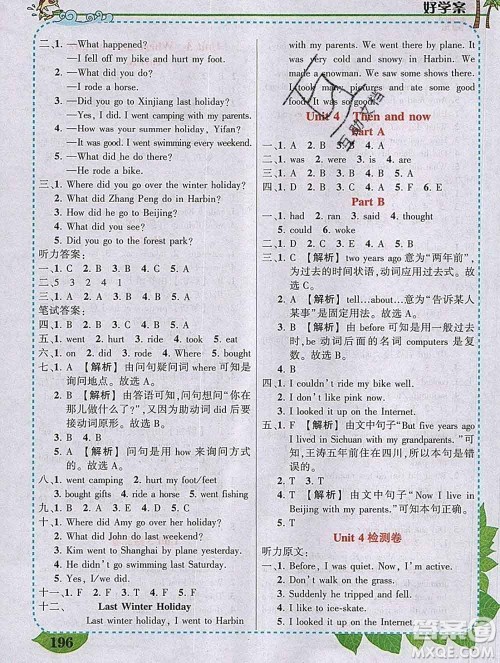 好学案
二、1. —What happened?
—I fell off my bike and hurt my foot.
2. —What did you do?
—I rode a horse.
3. —Did you go to Xinjiang last holiday?
—Yes, I went camping with my parents.
4. —How was your summer holiday, Yifan?
—It was good. I went swimming every weekend.
5. —What did he do there?
—He rode a bike.
三、1. Where did you go over the winter holiday?
2. What did Zhang Peng do in Harbin?
3. How did he go to Beijing?
4. What did you see?
5. Did you go to the forest park?
听力答案:
一、1. C 2. A 3. B 4. C 5. A
二、5 3 2 4 1
三、1. A 2. B 3. A 4. B 5. A
笔试答案:
四、1. B 2. B 3. C 4. C 5. A
五、1. went 2. hurt 3. ride 4. took 5. eat
六、1. on 2. did 3. off 4. Where 5. bought
七、1. A 【解析】由问句疑问词 where 可知为询问地点。故选 A。
2. B 【解析】由答语可知,问句想问“你在那儿做了什么?”,又因助动词 did 后接动词原形。故选 B。
3. B 4. B
5. A 【解析】问句是用 how 来询问方式的。故选 A。
八、1. went camping 2. hurt my foot/feet
3. bought gifts 4. rode a horse 5. went fishing
九、1. C 2. D 3. B 4. E 5. A
十、1. What did John do last winter holiday?
2. How did you go there?
3. Kim went to Shanghai by plane yesterday.
4. He didn't go swimming last Saturday.
5. Yes, I did.
十一、1. C 2. C 3. B 4. C 5. B
十二、 Last Winter Holiday
Last winter holiday, I went to Harbin
196
with my parents. We went there by train. It was very cold and snowy in Harbin. We made a snowman. We also took many pictures. I bought some gifts and ate some good food.
Unit 4 Then and now
Part A
一、1. A 2. B 3. C 4. A 5. C
二、1. was 2. were 3. is 4. are 5. were
四、D
Part B
一、1. had 2. ran 3. said 4. thought
5. know
三、1. C 【解析】two years ago 意为“两年前”,为过去的时间状语,动词应用过去式。故选 C。
2. A 【解析】tell...about... 意为“告诉某人某事”,是固定用法。故选 A。
3. C 【解析】由 before 可知用一般过去时,be 动词后面的名词 computers 是复数。故选 C。
四、1. I couldn't ride my bike well.
2. I don't like pink now.
3. I looked it up on the Internet.
五、1. F 【解析】由文中句子“But five years ago I lived in Sichuan with my grandparents.”可知,王涛五年前住在四川,所以本句错误。
2. T
3. T 【解析】由文中句子“Now I live in Beijing with my parents.”可知本句正确。
4. T 5. F
Unit 4 检测卷
听力原文:
一、1. Before, I was quiet. Now, I am
2. Don't walk on the grass.
3. Suddenly he tripped and fell.
4. I like to ice-skate.
5. I looked it up on the Internet.
互助文档
答案圈
MXQE.COM